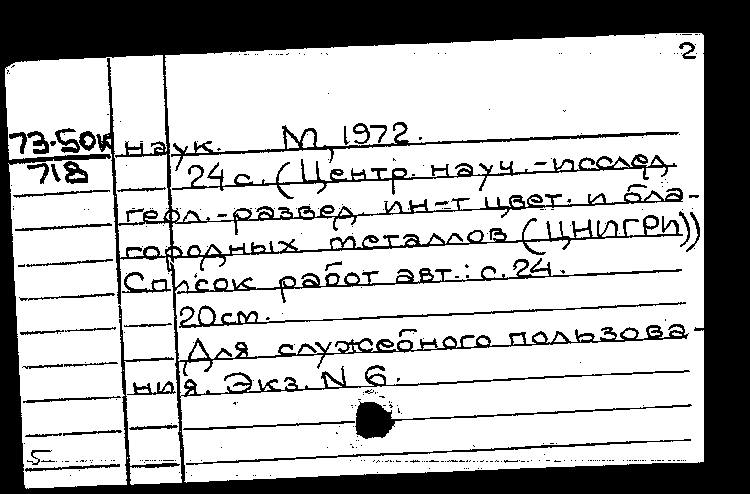 2
73-50к наук. М, 1972.
718
24 с. (Центр. науч.-исслед.
геол.-развед. ин-т цвет. и бла-
городных металлов (ЦНИГРИ))
Список работ авт.: с. 24.
20 см.
Для служебного пользова-
ния. Экз. N 6.
5